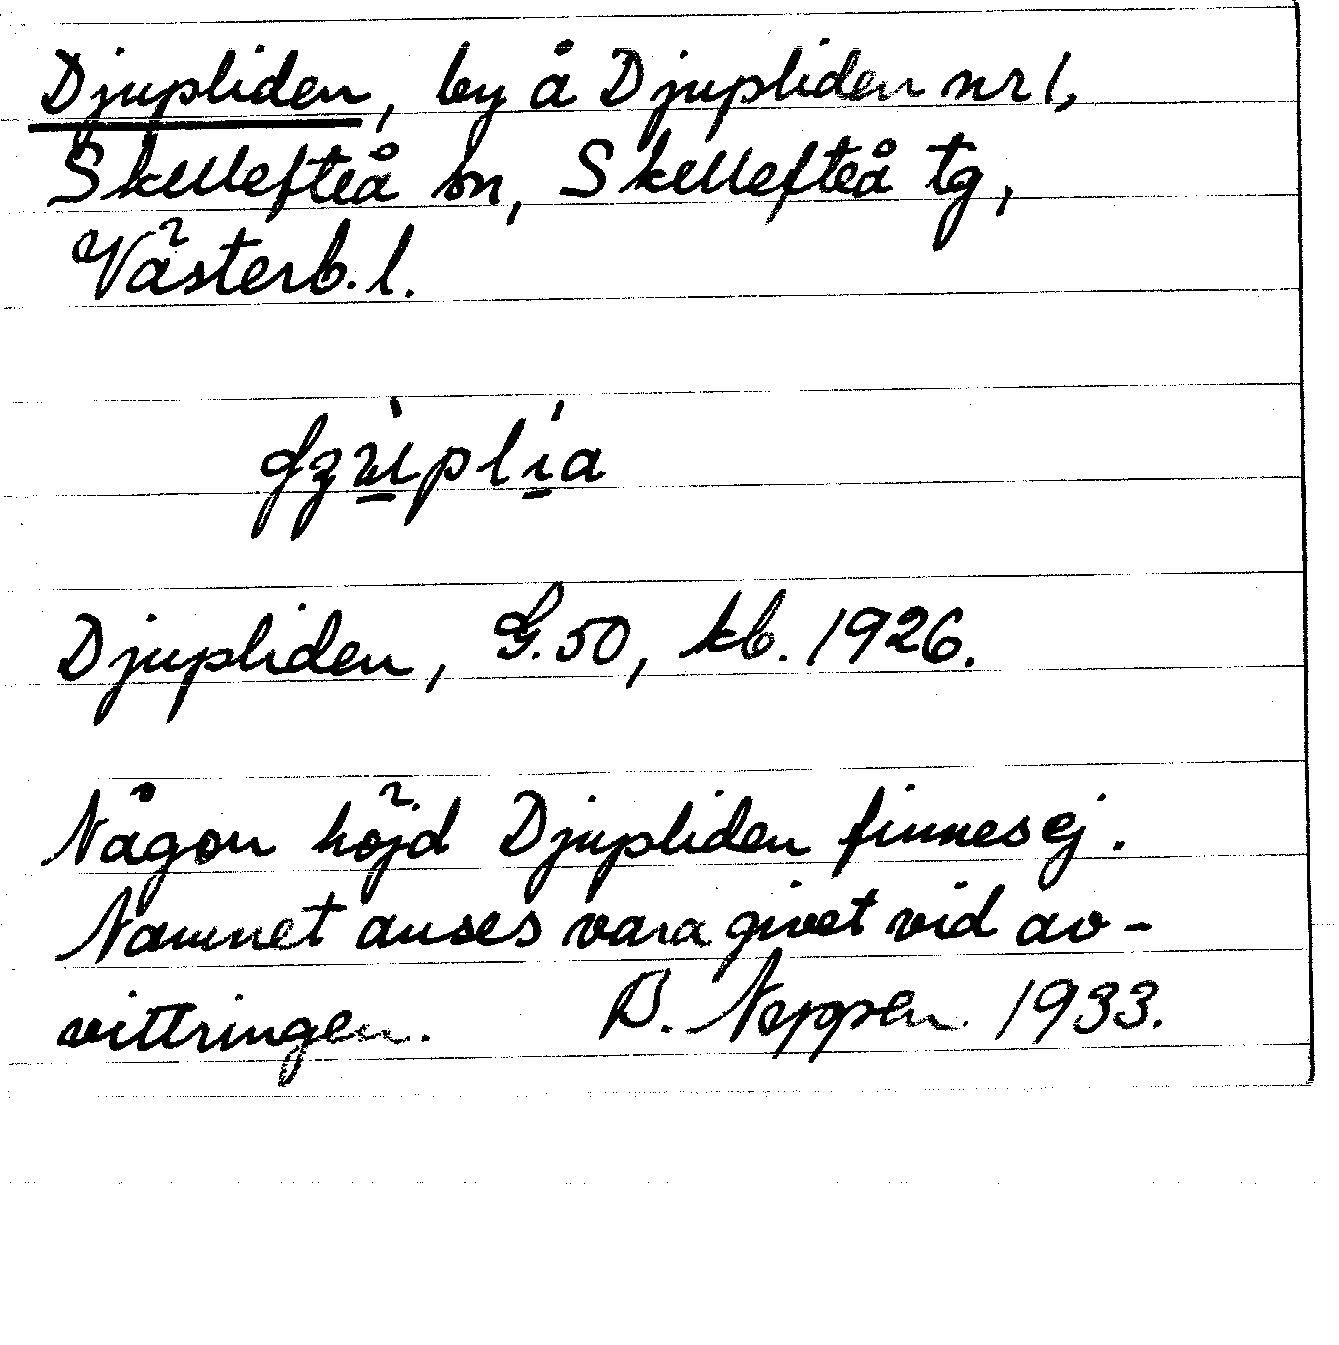 Djupliden, by å Djupliden nr 1,
Skellefteå sn, Skellefteå tg,
Västerb. l.
Djupliden, G. 50, kb. 1926.
Någon höjd Djupliden finnes ej.
Namnet anses vara givet vid av-
vittringen. B. Neppen 1933.